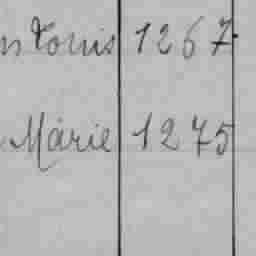 Louis 1267
Marie 1275